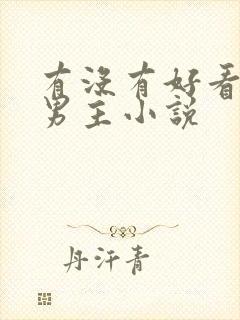 有没有好看
男主小说
丹汗青